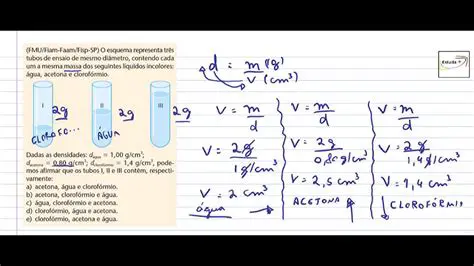 (FMU/Fiam-Faam/Fisp-SP) O esquema representa três
tubos de ensaio de mesmo diâmetro, contendo cada
um a mesma massa dos seguintes líquidos incolores:
água, acetona e clorofórmio.
I II III
2g 2g 2g
CLOROFÓ... ÁGUA
Dadas as densidades: dágua = 1,00 g/cm³;
dacetona = 0,80 g/cm³; dclorofórmio = 1,4 g/cm³, pode-
mos afirmar que os tubos I, II e III contêm, respecti-
vamente:
a) acetona, água e clorofórmio.
b) acetona, clorofórmio e água.
c) água, clorofórmio e acetona.
d) clorofórmio, água e acetona.
e) clorofórmio, acetona e água.
d = m (g)
V (cm³)
V = m V = m V = m
d d d
V = 2g V = 2g V = 2g
1g/cm³ 0,80g/cm³ 1,4g/cm³
V = 2 cm³ V = 2,5 cm³ V = 1,4 cm³
água ACETONA CLOROFÓRMIO
Estuda +